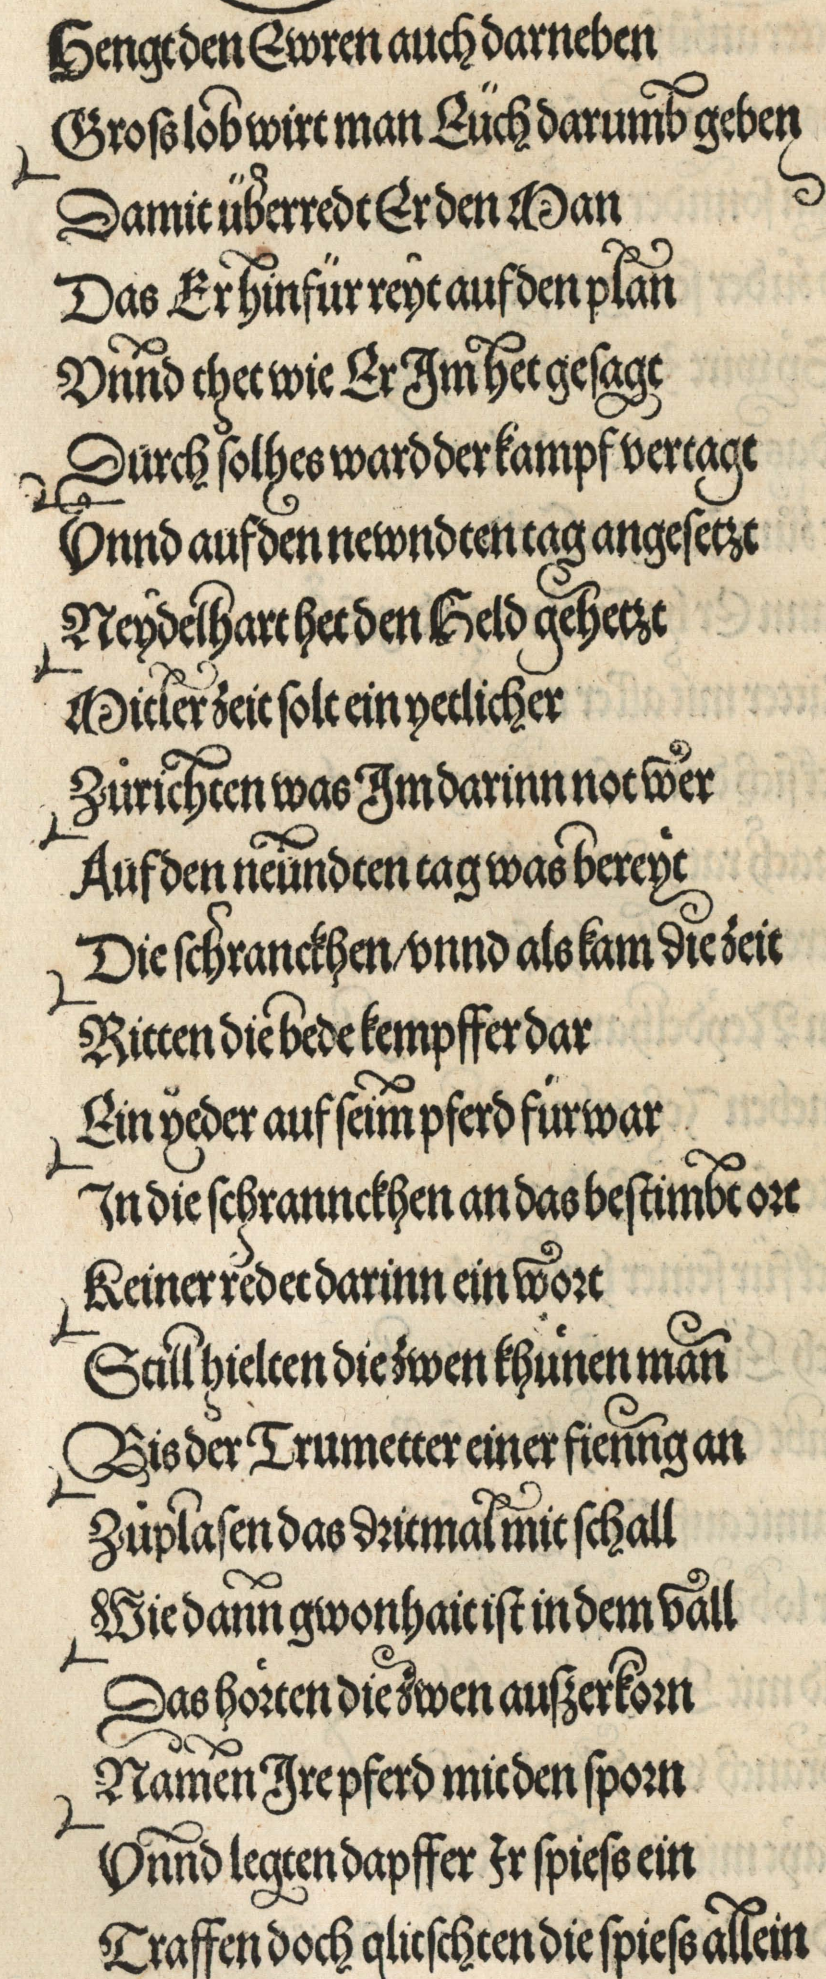 Hengt den Ewren auch darneben
Gross lob wirt man Eüch darumb geben
Damit überredt Er den Man
Das Er hinfür reyt auf den plan
Vnnd thet wie Er Im het gesagt
Durch solhes ward der kampf vertagt
Vnnd auf den newndten tag angesetzt
Neydelhart het den Held gehetzt
Mitler zeit solt ein yetlicher
Zůrichten was Im darinn not wer
Auf den neündten tag was bereyt
Die schranckhen / vnnd als kam die zeit
Ritten die bede kempffer dar
Ein yeder auf seim pferd fürwar
In die schrannckhen an das bestimbt ort
Keiner redet darinn ein wort
Still hielten die zwen khünen man
Bis der Trumetter einer fienng an
Zůplasen das dritmal mit schall
Wie dann gwonhait ist in dem vall
Das hörten die zwen auszerkorn
Namen Ire pferd mit den sporn
Vnnd legten dapffer Ir spiess ein
Traffen doch glitschten die spiess allein